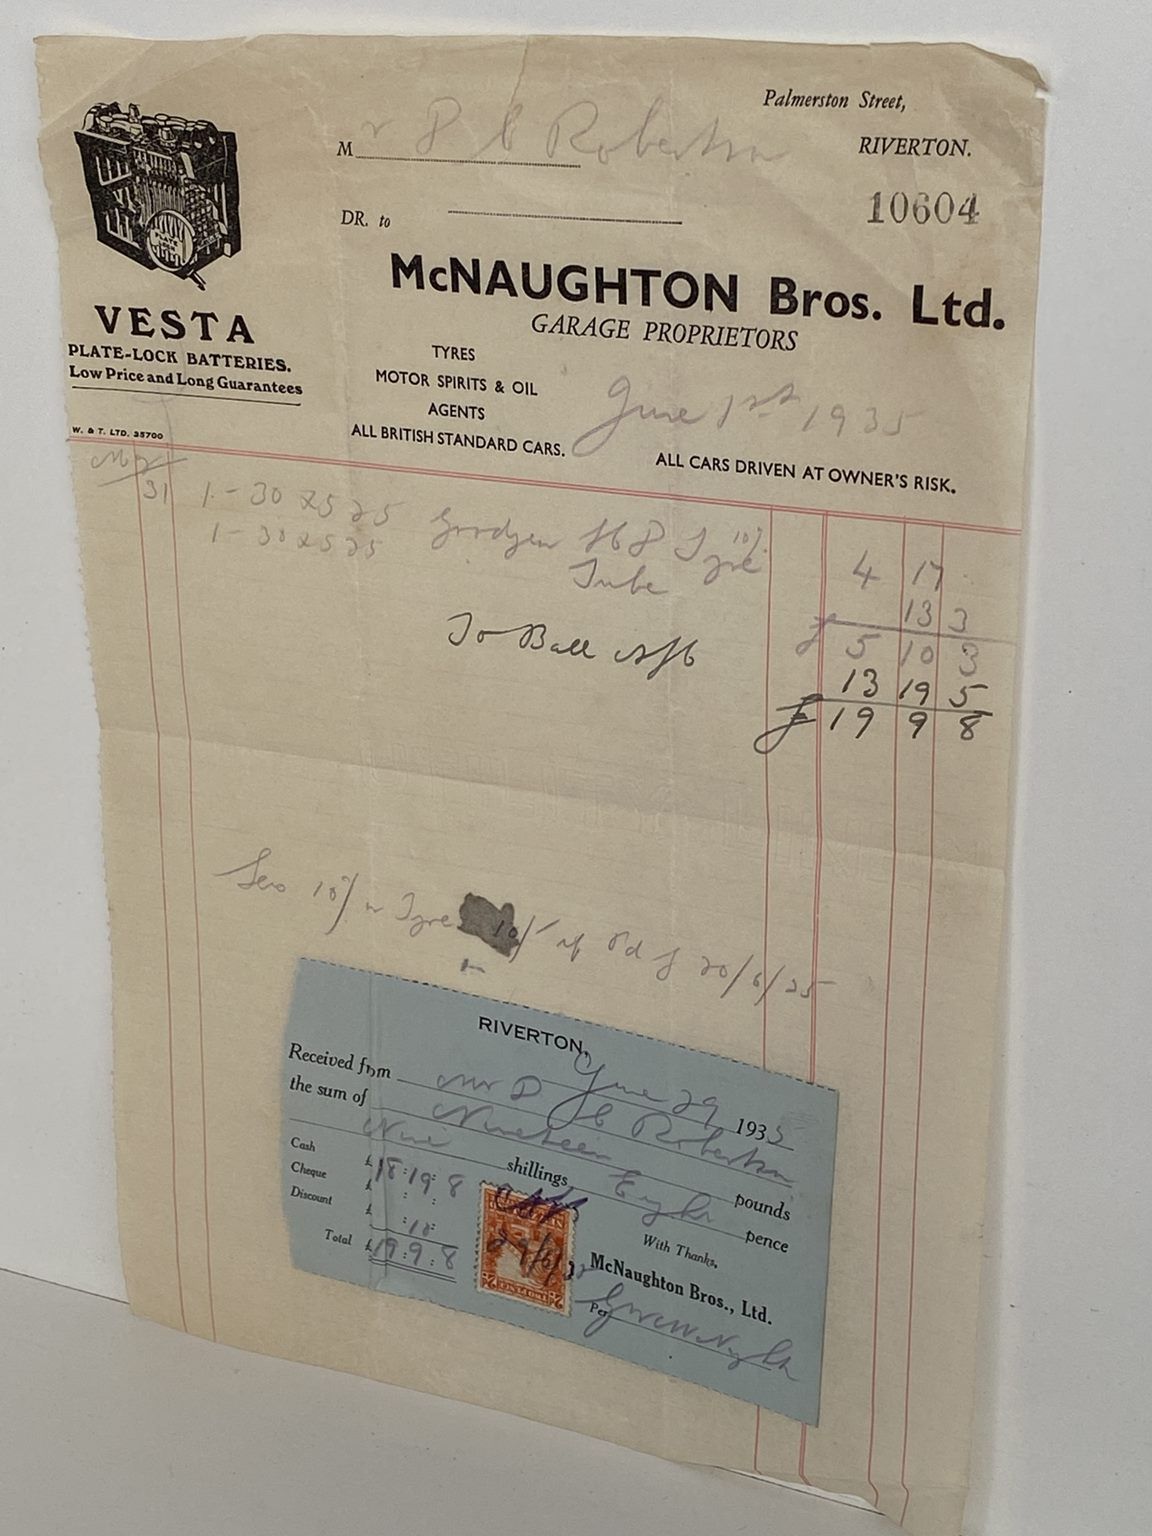 Palmerston Street,
RIVERTON.
Mr D C Robertson
10604
DR. to
McNAUGHTON Bros. Ltd.
GARAGE PROPRIETORS
VESTA
PLATE-LOCK BATTERIES.
Low Price and Long Guarantees
W. & T. LTD. 35700
TYRES
MOTOR SPIRITS & OIL
AGENTS
ALL BRITISH STANDARD CARS.
June 1st 1935
ALL CARS DRIVEN AT OWNER'S RISK.
May
31 1 - 30 x 5 25 Goodyear Tyre 4 17
1 - 30 x 5 25 Tube 13 3
£ 5 10 3
To Ball 13 19 5
£ 19 9 8
Less 10/ Tyre 10/ if Pd 20/6/35
RIVERTON, June 29 1935
Received from Mr D C Robertson
the sum of Nineteen pounds
Nine shillings Eight pence
Cash £ 18 : 19 : 8
Cheque £ : :
Discount £ : 10 :
Total £ 19 : 9 : 8
29/6/35
With Thanks,
McNaughton Bros., Ltd.
Per